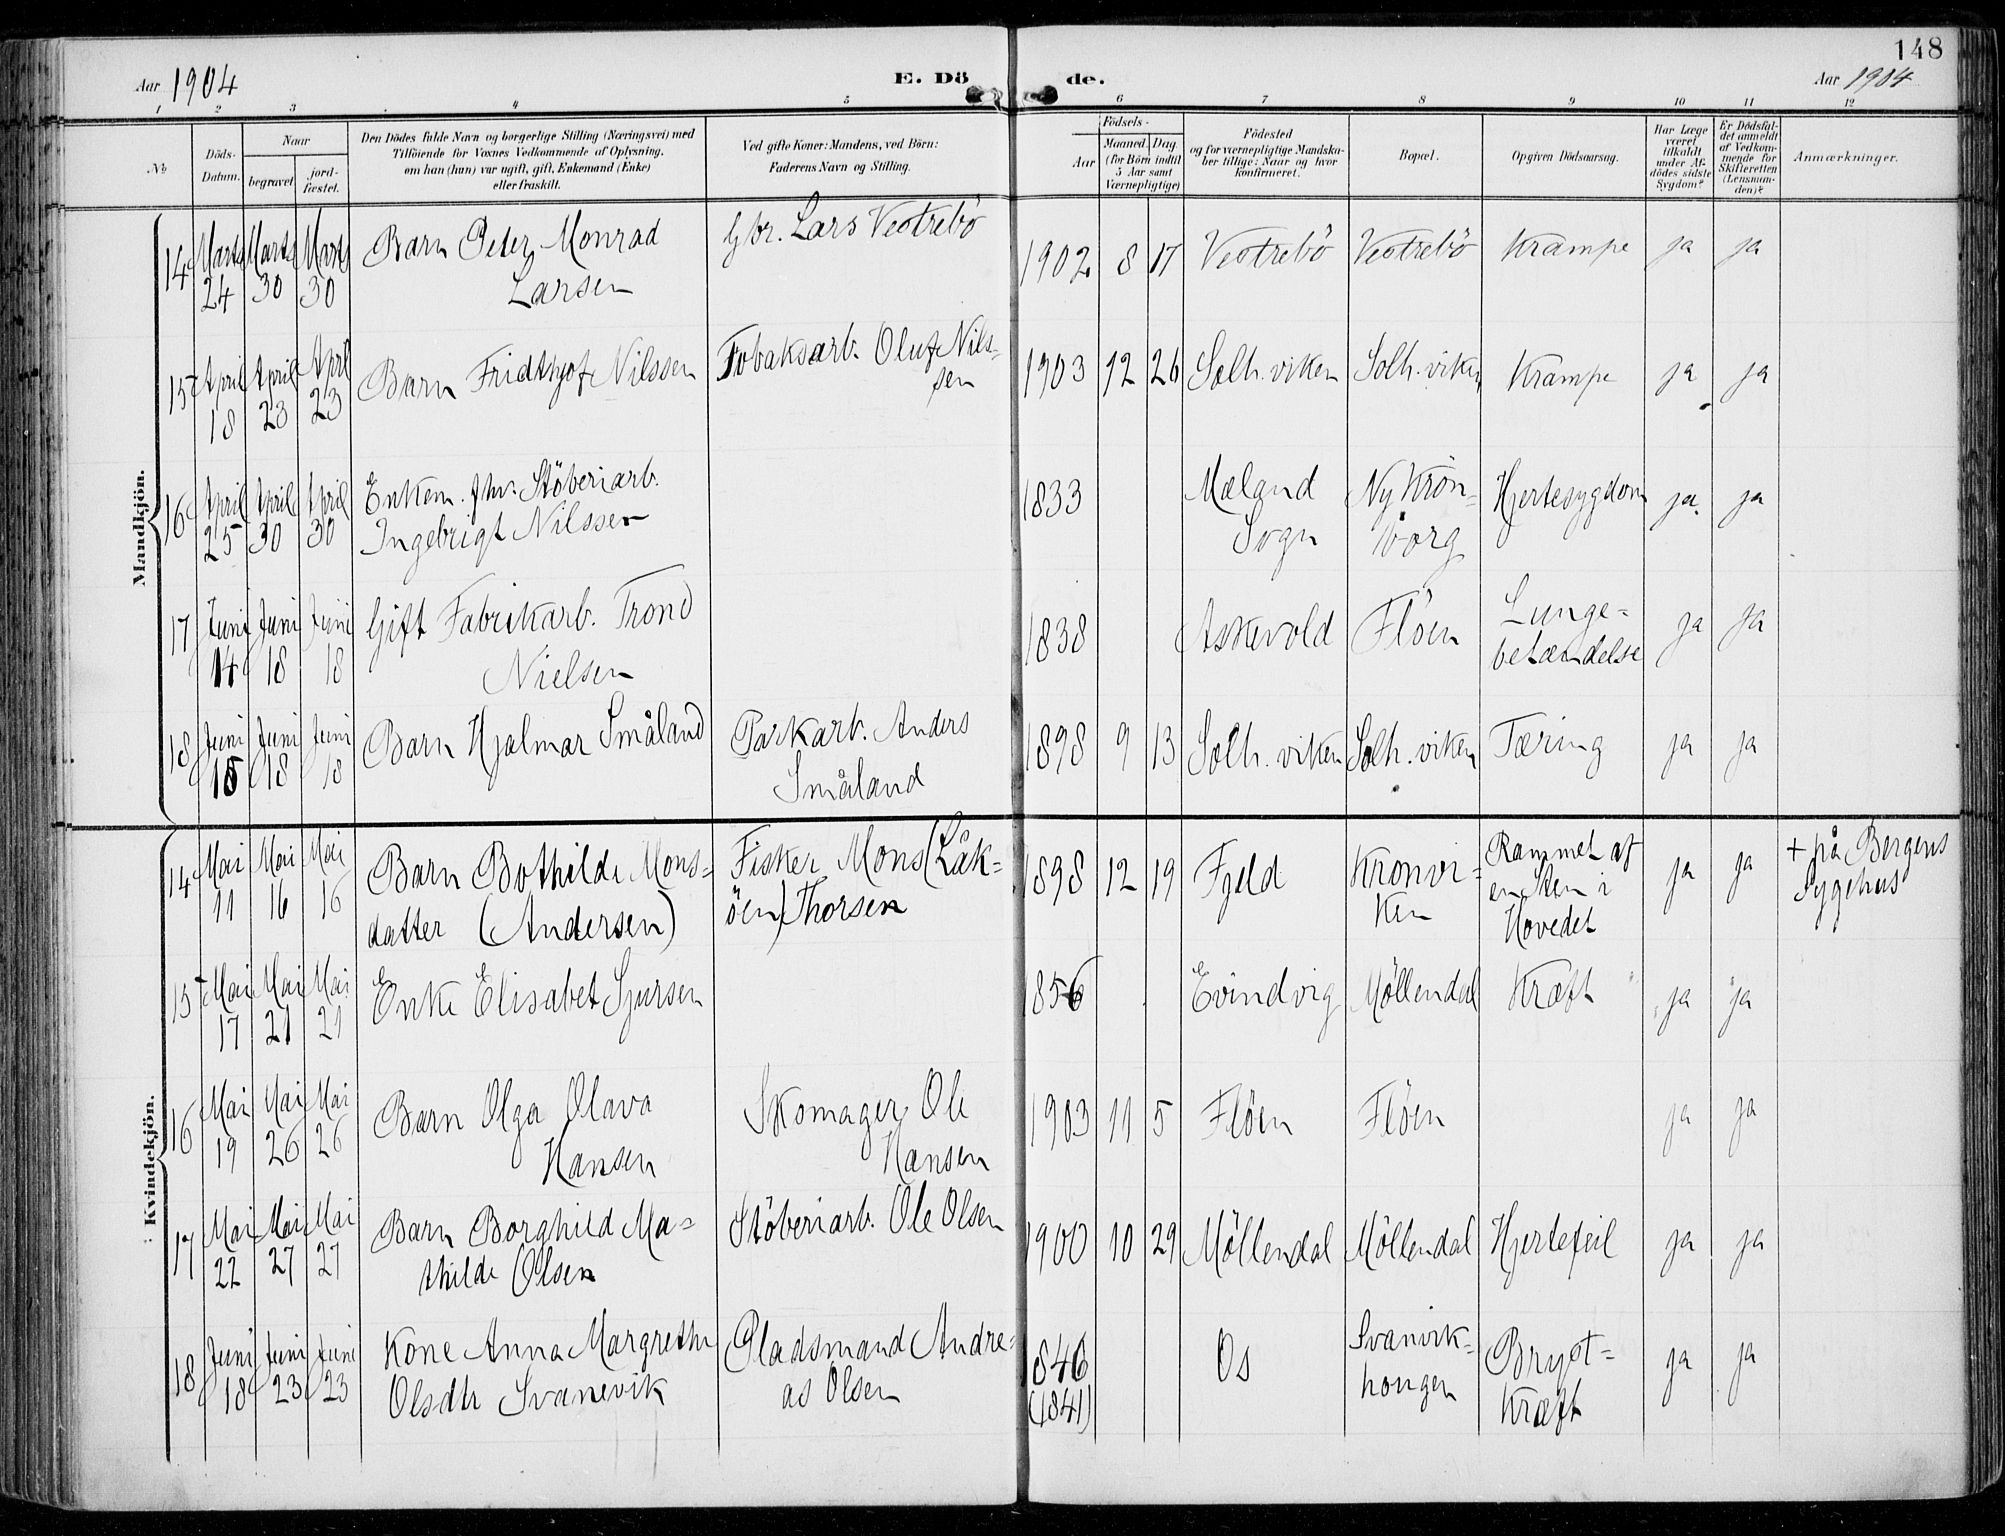 148
Aar 1904 E. Dö de. Aar 1904
1 2 3 4 5 6 7 8 9 10 11 12
No.
Döds-
Datum.
Naar
begravet.
jord-
fæstet.
Den Dödes fulde Navn og borgerlige Stilling (Næringsvei) med
Tilföiende for Voxnes Vedkommende af Oplysning,
om han (hun) var ugift, gift, Enkemand (Enke)
eller fraskilt.
Ved gifte Koner: Mandens, ved Börn:
Faderens Navn og Stilling.
Födsels-
Aar
Maaned
(for Börn indtil
5 Aar samt
Værnepligtige)
Dag
Födested
og for værnepligtige Mandska-
ber tillige: Naar og hvor
konfirmeret.
Bopæl.
Opgiven Dödsaarsag.
Har Læge
været
tilkaldt
under Af-
dödes sidste
Sygdom?
Er Dödsfal-
det anmeldt
af Vedkom-
mende for
Skifteretten
(Lensman-
den)?
Anmærkninger.
Mandkjön.
14 Marts 24 Marts 30 Marts 30 Barn Peter Monrad
Larsen
Gbr. Lars Vestrebö
1902 8 17 Vestrebö Vestrebö Krampe ja ja
15 April 18 April 23 April 23 Barn Fridthjof Nilssen
Tobaksarb. Oluf Nils-
sen
1903 12 26 Solh. viken Solh. viken Krampe ja ja
16 April 25 April 30 April 30 Enkem. fhv. Stöberiarb.
Ingebrigt Nilssen
1833 Mæland
Sogn
Ny Krön-
borg
Hjertesygdom ja ja
17 Juni 14 Juni 18 Juni 18 Gift Fabrikarb. Trond
Nielsen
1838 Askevold Flöen Lunge-
betændelse
ja ja
18 Juni 15 Juni 18 Juni 18 Barn Hjalmar Småland
Parkarb. Anders
Småland
1898 9 13 Solh. viken Solh. viken Tæring ja ja
Kvindekjön.
14 Mai 11 Mai 16 Mai 16 Barn Bothilde Mons-
datter (Andersen)
Fisker Mons (Låk-
öen) Thorsen
1898 12 19 Fjeld Kronvi-
ken
Rammet af
en Sten i
Hovedet
ja ja + på Bergens
Sygehus
15 Mai 17 Mai 21 Mai 21 Enke Elisabet Sjursen
1856 Evindvig Möllendal Kræft ja ja
16 Mai 19 Mai 26 Mai 26 Barn Olga Olava
Hansen
Skomager Ole
Hansen
1903 11 5 Flöen Flöen ja ja
17 Mai 22 Mai 27 Mai 27 Barn Borghild Ma-
thilde Olsen
Stöberiarb. Ole Olsen
1900 10 29 Möllendal Möllendal Hjertefeil ja ja
18 Juni 18 Juni 23 Juni 23 Kone Anna Margrethe
Olsdtr Svanevik
Pladsmand Andre-
as Olsen
1846
(1841)
Os Svanvik-
hougen
Bryst-
kræft
ja ja